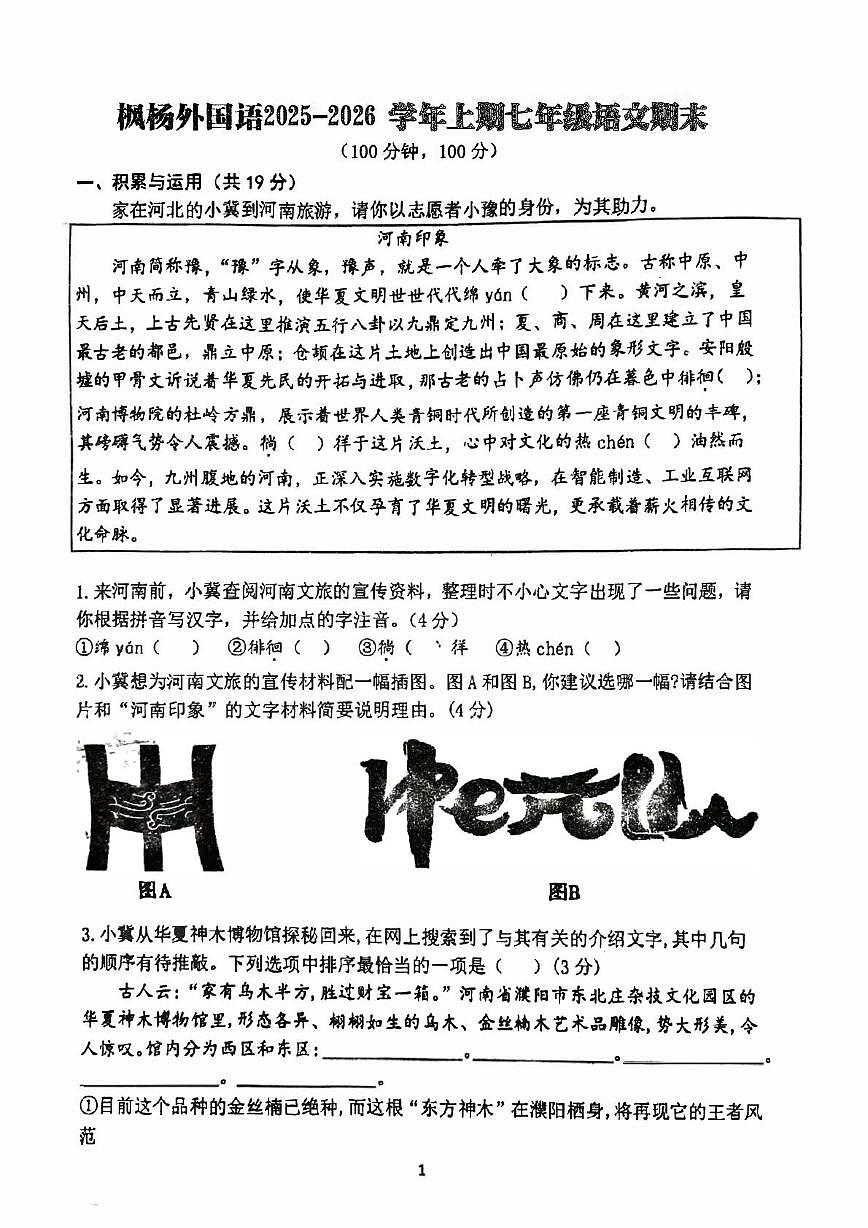 枫杨外国语2025-2026 学年上期七年级语文期末
（100 分钟，100 分）
一、积累与运用（共 19 分）
家在河北的小冀到河南旅游，请你以志愿者小豫的身份，为其助力。
河南印象
河南简称豫，“豫”字从象，豫声，就是一个人牵了大象的标志。古称中原、中
州，中天而立，青山绿水，使华夏文明世世代代绵 yán（ ）下来。黄河之滨，皇
天后土，上古先贤在这里推演五行八卦以九鼎定九州；夏、商、周在这里建立了中国
最古老的都邑，鼎立中原；仓颉在这片土地上创造出中国最原始的象形文字。安阳殷
墟的甲骨文诉说着华夏先民的开拓与进取，那古老的占卜声仿佛仍在暮色中徘徊（ ）；
河南博物院的杜岭方鼎，展示着世界人类青铜时代所创造的第一座青铜文明的丰碑，
其磅礴气势令人震撼。徜（ ）徉于这片沃土，心中对文化的热 chén（ ）油然而
生。如今，九州腹地的河南，正深入实施数字化转型战略，在智能制造、工业互联网
方面取得了显著进展。这片沃土不仅孕育了华夏文明的曙光，更承载着薪火相传的文
化命脉。
1. 来河南前，小冀查阅河南文旅的宣传资料，整理时不小心文字出现了一些问题，请
你根据拼音写汉字，并给加点的字注音。（4 分）
①绵 yán（ ） ②徘徊（ ） ③徜（ ）徉 ④热 chén（ ）
2. 小冀想为河南文旅的宣传材料配一幅插图。图 A 和图 B, 你建议选哪一幅?请结合图
片和“河南印象”的文字材料简要说明理由。(4 分)
图A
图B
3. 小冀从华夏神木博物馆探秘回来, 在网上搜索到了与其有关的介绍文字, 其中几句
的顺序有待推敲。下列选项中排序最恰当的一项是（ ）(3 分)
古人云：“家有乌木半方, 胜过财宝一箱。”河南省濮阳市东北庄杂技文化园区的
华夏神木博物馆里, 形态各异、栩栩如生的乌木、金丝楠木艺术品雕像, 势大形美, 令
人惊叹。馆内分为西区和东区：____。____。____。
____。____。
①目前这个品种的金丝楠已绝种, 而这根“东方神木”在濮阳栖身, 将再现它的王者风
范
1